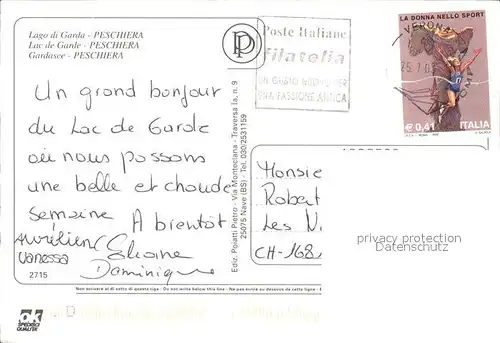 Lago di Garda - PESCHIERA
Lac de Garde - PESCHIERA
Gardasee - PESCHIERA
Un grand bonjour
du Lac de Garde
où nous passons
une belle et chaude
semaine A bientôt
Aurélien Eliane
Vanessa Dominique
2715
ok
SPEDIRCI
QUALITÀ
Ediz. Poiatti Pietro - Via Monteciana - Traversa Ia, n. 9
25075 Nave (BS) - Tel. 030/2531159
PD
Poste Italiane
Filatelia
UN GIORNO
UNA PASSIONE ANTICA
VERONA
LA DONNA NELLO SPORT
€ 0,41 ITALIA
Monsie
Robert
Les V
CH-168
privacy protection
Datenschutz
Non scrivere al di sotto di questa riga - Do not write below this line - Ne pas écrire au dessous de cette ligne